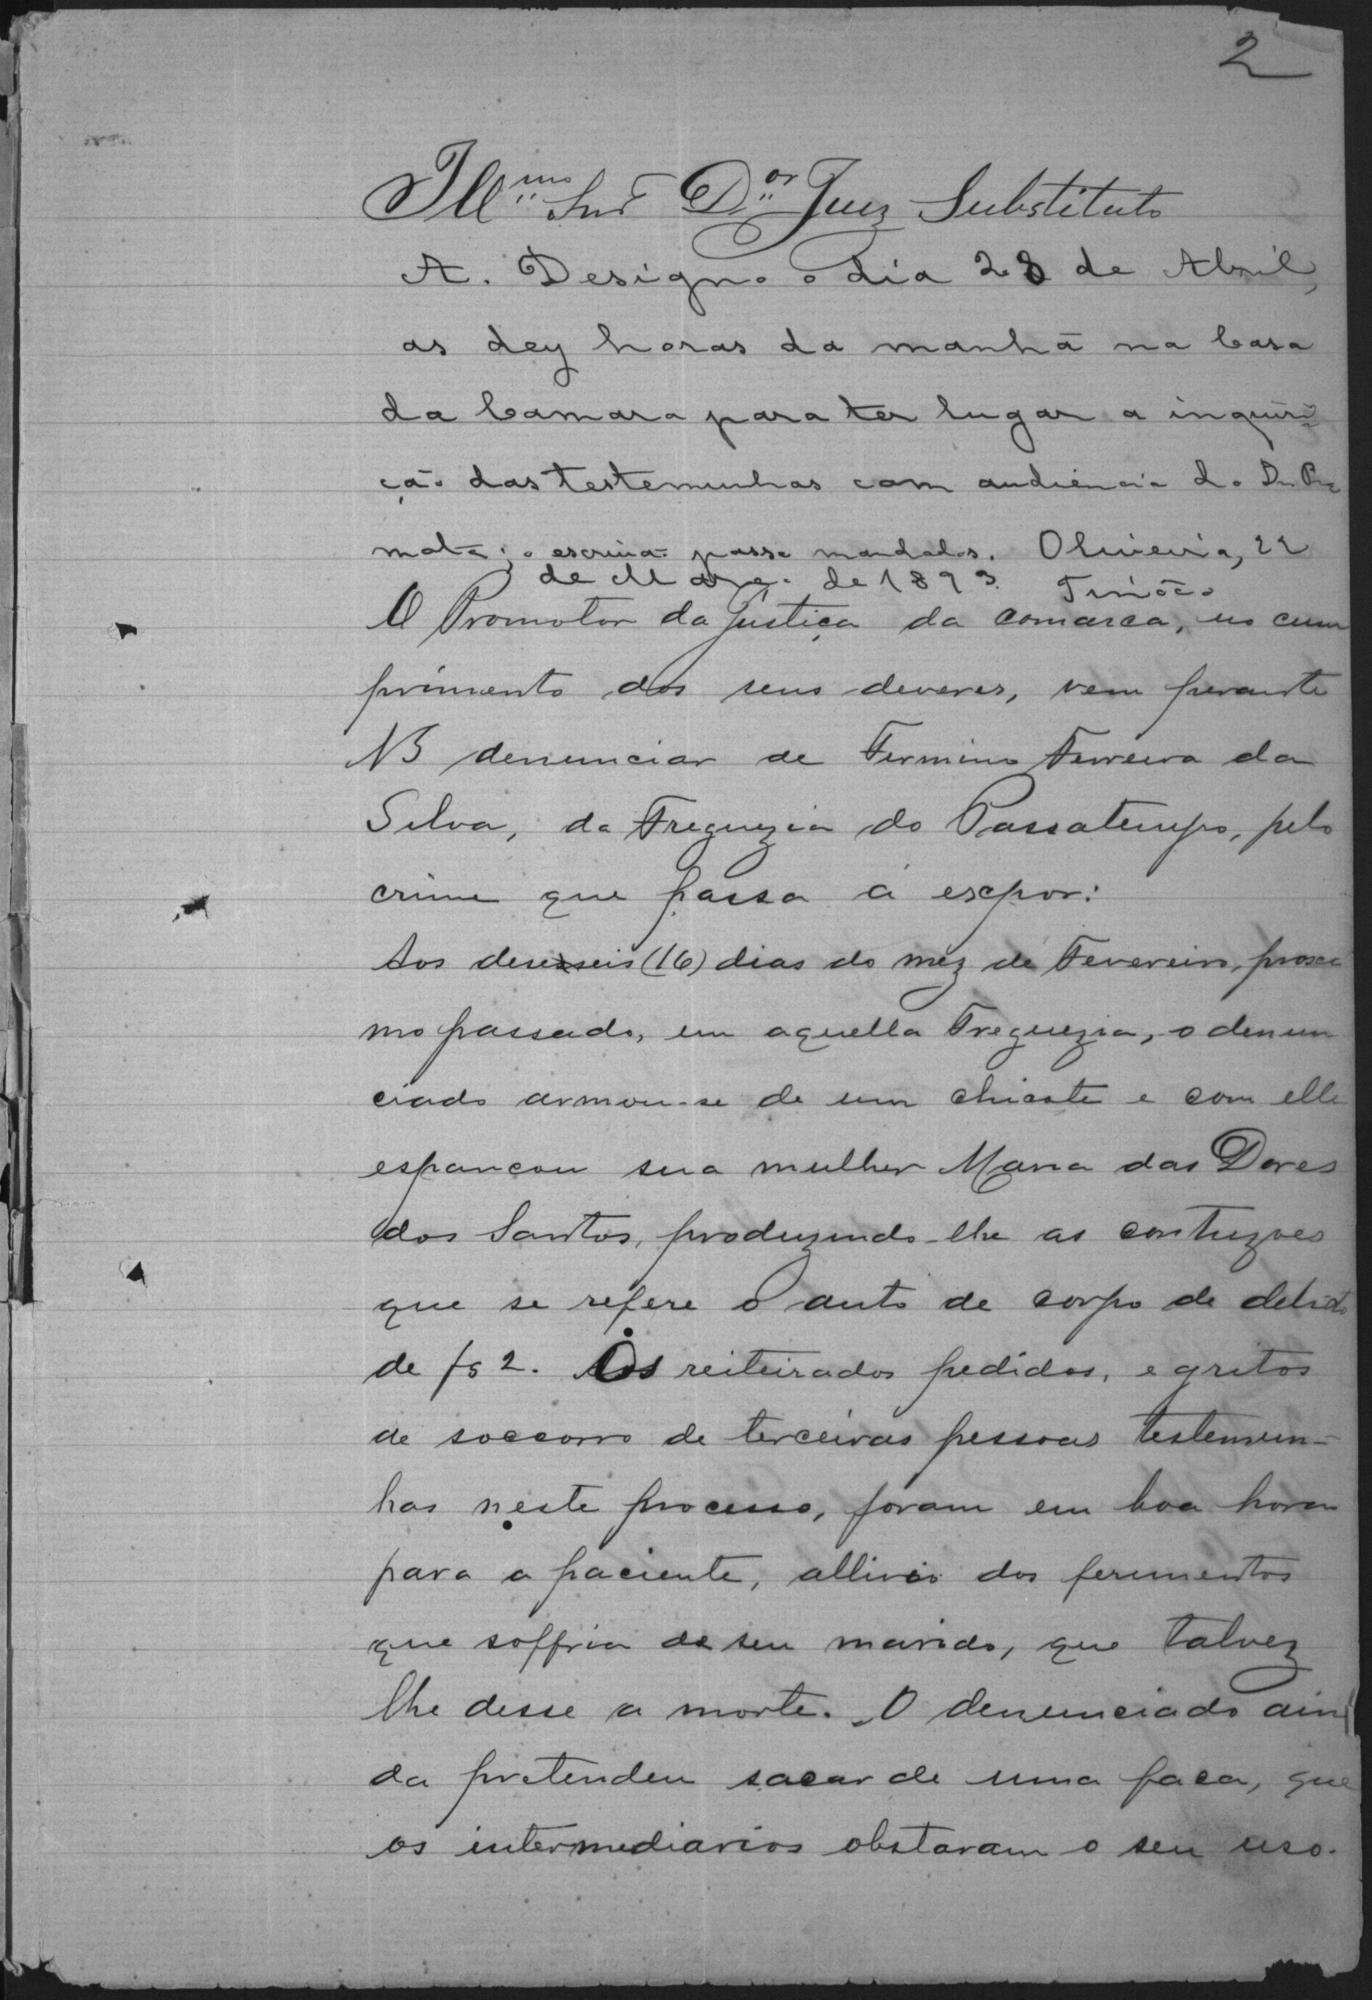 2
Ill.mo Snr D.or Juiz Substituto
A. Designo o dia 28 de Abril,
as dez horas da manhã na Casa
da Camara para ter lugar a inquiri
ção das testemunhas com audiencia do Dr. Pro
motor; o escrivão passe mandados. Oliveira, 22
de Março de 1893.
O Promotor da Justiça da comarca, no cum
primento dos seus deveres, vem perante
VS denunciar de Firmino Ferreira da
Silva, da Freguezia do Passatempo, pelo
crime que passa á expor:
Aos deseseis (16) dias do mez de Fevereiro, proxi
mo passado, em aquella Freguezia, o denun
ciado armou-se de um chicote e com elle
espancou sua mulher Maria das Dores
dos Santos, produzindo-lhe as contuzões
que se refere o auto de corpo de delicto
de fs 2. Os reiteirados pedidos, e gritos
de soccorro de terceiras pessoas testemun-
has neste processo, foram em boa hora
para a paciente, allivio dos ferimentos
que soffria de seu marido, que talvez
lhe desse a morte. O denunciado ain
da pretendeu sacar de uma faca, que
os intermediarios obstaram o seu uso.